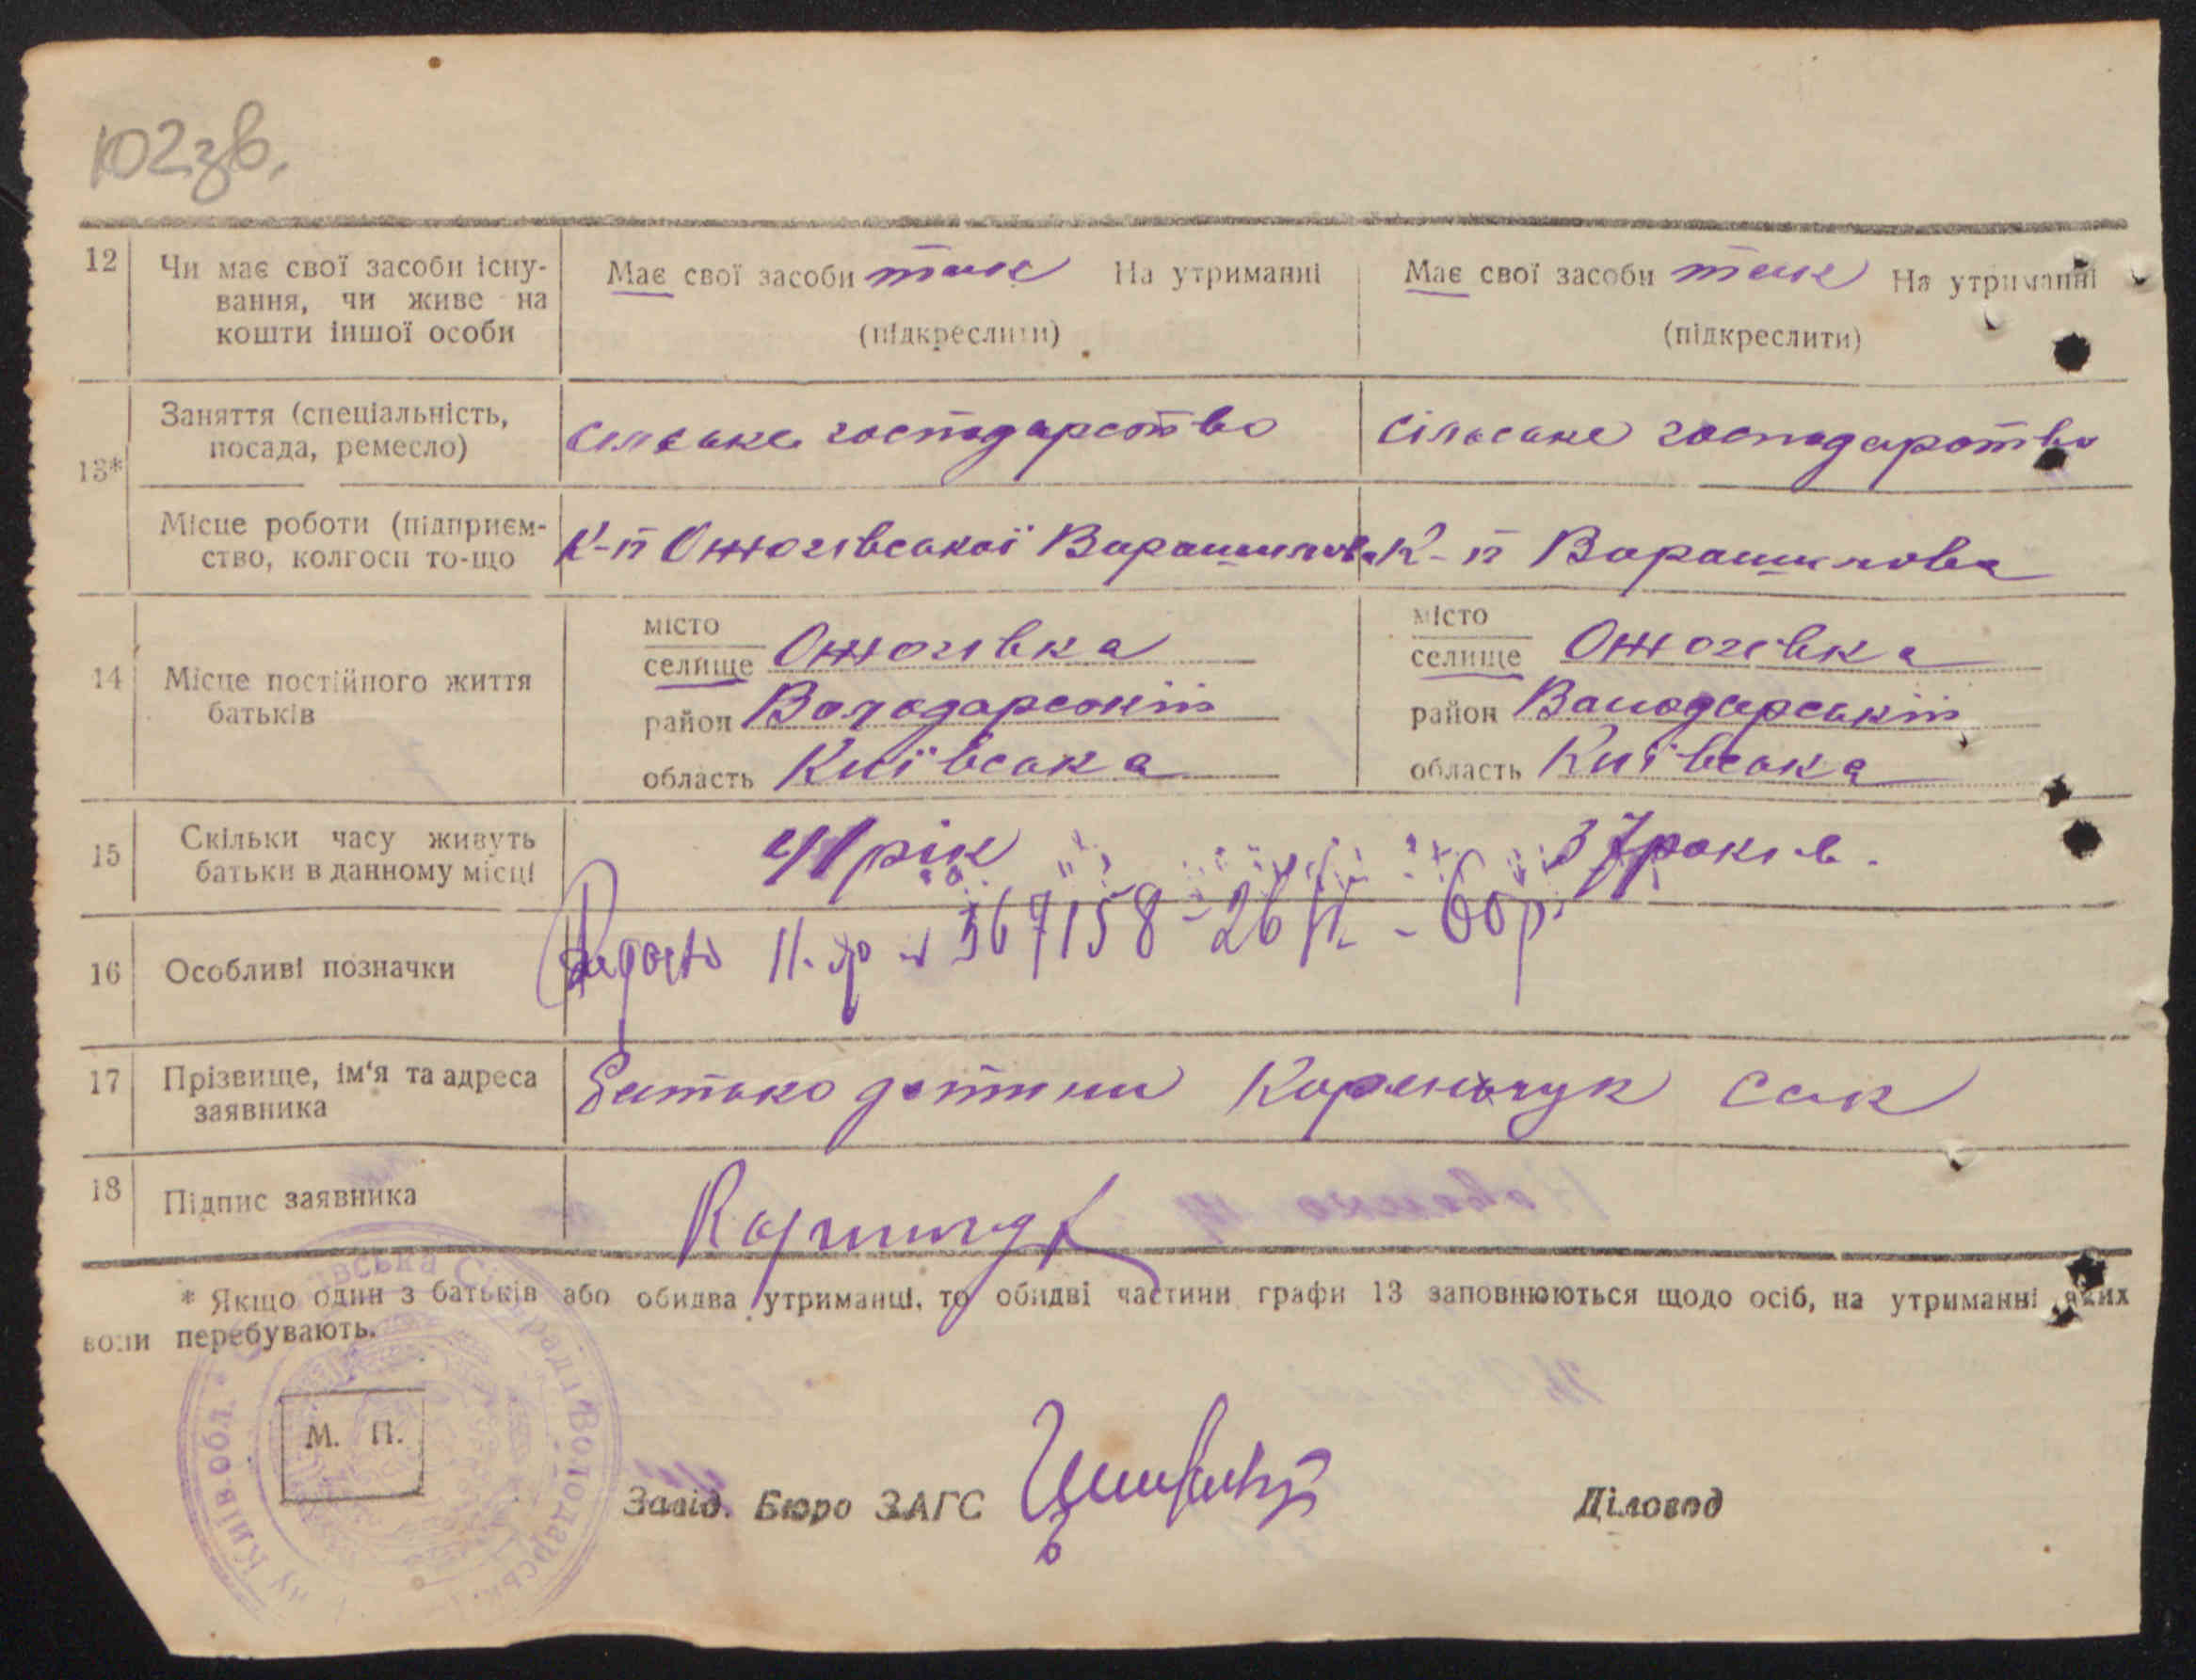 102зв.
12 Чи має свої засоби існу- Має свої засоби так На утриманні Має свої засоби так На утриманні
вання, чи живе на
кошти іншої особи (підкреслити) (підкреслити)
13* Заняття (спеціальність, сільське господарство сільське господарство
посада, ремесло)
Місце роботи (підприєм- К-п Ожогівської Варашилова К-п Варашилова
ство, колгосп то-що
14 Місце постійного життя місто місто
батьків селище Ожогівка селище Ожогівка
район Володарский район Валодарський
область Київська область Київська
15 Скільки часу живуть 41 рік 37 років.
батьки в данному місці
16 Особливі позначки 367158 - 26 - 60р.
17 Прізвище, ім'я та адреса батько дитини Сак
заявника
18 Підпис заявника
* Якщо один з батьків або обидва утриманці, то обидві частини графи 13 заповнюються щодо осіб, на утриманні яких
вони перебувають.
М. П.
Завід. Бюро ЗАГС Діловод